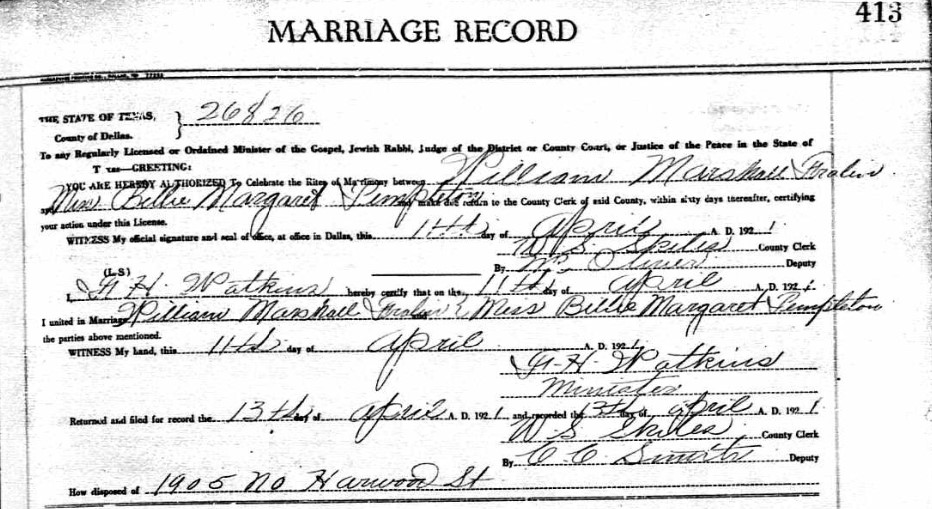 413
MARRIAGE RECORD
THE STATE OF TEXAS, } 26826
County of Dallas.
To any Regularly Licensed or Ordained Minister of the Gospel, Jewish Rabbi, Judge of the District or County Court, or Justice of the Peace in the State of
T xas—GREETING:
YOU ARE HEREBY AUTHORIZED To Celebrate the Rites of Matrimony between William Marshall Fralin
and Miss Billie Margaret Templeton and make due return to the County Clerk of said County, within sixty days thereafter, certifying
your action under this License.
WITNESS My official signature and seal of office, at office in Dallas, this 11th day of April A. D. 1921
W S Skiles County Clerk
(L S) By Deputy
I, H Watkins hereby certify that on the 11th day of April A. D. 192
I united in Marriage William Marshall Fralin & Miss Billie Margaret Templeton
the parties above mentioned.
WITNESS My hand, this 11th day of April A. D. 1921
H Watkins
Minister
Returned and filed for record the 13th day of April A. D. 1921 and recorded the 13th day of April A. D. 1921
W S Skiles County Clerk
By C C Deputy
How disposed of 1905 No Harwood St